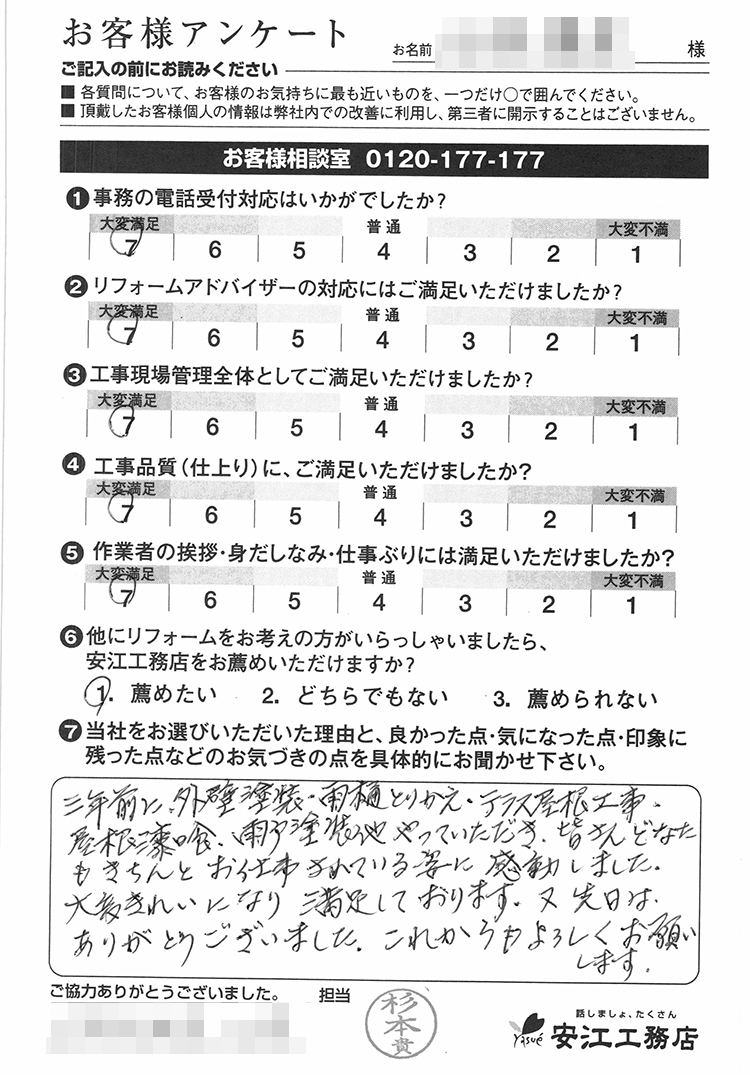 お客様アンケート
お名前 様
ご記入の前にお読みください
■ 各質問について、お客様のお気持ちに最も近いものを、一つだけ○で囲んでください。
■ 頂戴したお客様個人の情報は弊社内での改善に利用し、第三者に開示することはございません。
お客様相談室 0120-177-177
❶ 事務の電話受付対応はいかがでしたか?
大変満足 普通 大変不満
7 6 5 4 3 2 1
❷ リフォームアドバイザーの対応にはご満足いただけましたか?
大変満足 普通 大変不満
7 6 5 4 3 2 1
❸ 工事現場管理全体としてご満足いただけましたか?
大変満足 普通 大変不満
7 6 5 4 3 2 1
❹ 工事品質(仕上り)に、ご満足いただけましたか?
大変満足 普通 大変不満
7 6 5 4 3 2 1
❺ 作業者の挨拶・身だしなみ・仕事ぶりには満足いただけましたか?
大変満足 普通 大変不満
7 6 5 4 3 2 1
❻ 他にリフォームをお考えの方がいらっしゃいましたら、
安江工務店をお薦めいただけますか?
1. 薦めたい 2. どちらでもない 3. 薦められない
❼ 当社をお選びいただいた理由と、良かった点・気になった点・印象に
残った点などのお気づきの点を具体的にお聞かせ下さい。
三年前に、外壁塗装・雨樋とりかえ・テラス屋根工事・
屋根漆喰、雨戸塗装他やっていただき、皆さんどなた
もきちんとお仕事されている姿に感動しました。
大変きれいになり満足しております。又先日は、
ありがとうございました。これからもよろしくお願い
します。
ご協力ありがとうございました。 担当 杉本貴
話しましょ、たくさん
Yasué 安江工務店